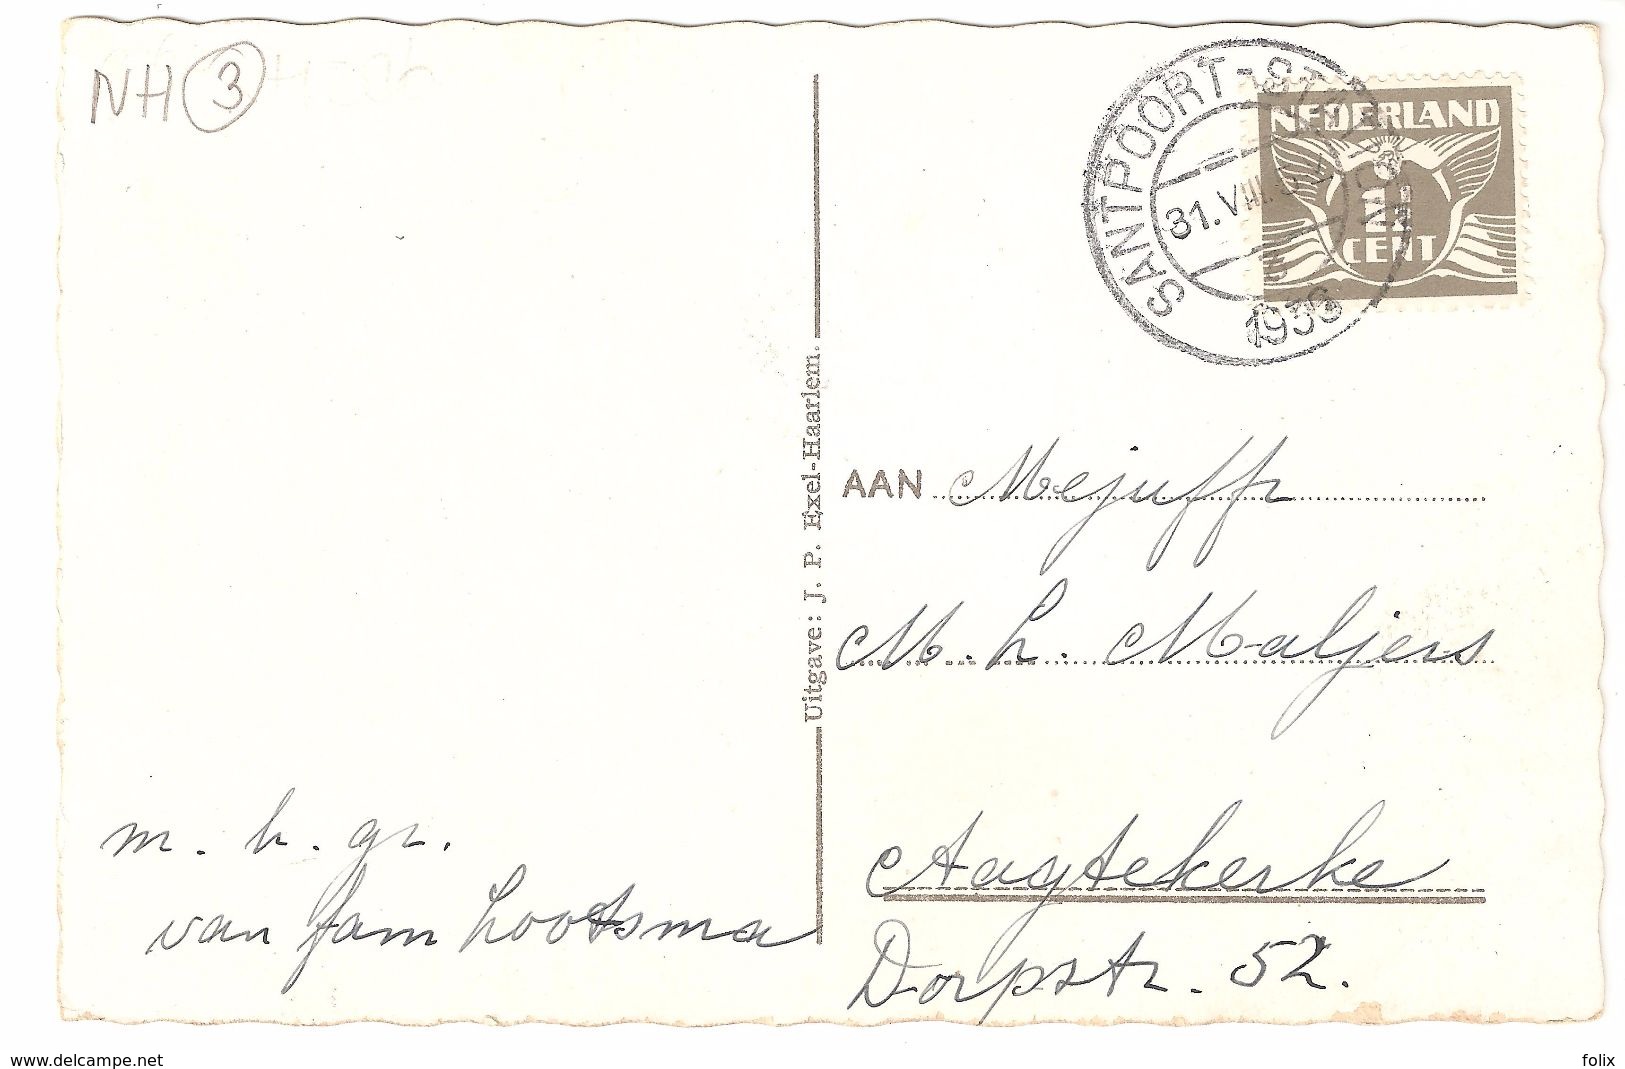 NH 3
SANTPOORT-STATION
31.VIII.
1936
NEDERLAND
1½
CENT
Uitgave: J. P. Exel-Haarlem.
AAN Mejuffr
M. L. Maljers
Aagtekerke
Dorpstr. 52.
m. h. gr.
van fam Lootsma
www.delcampe.net
folix